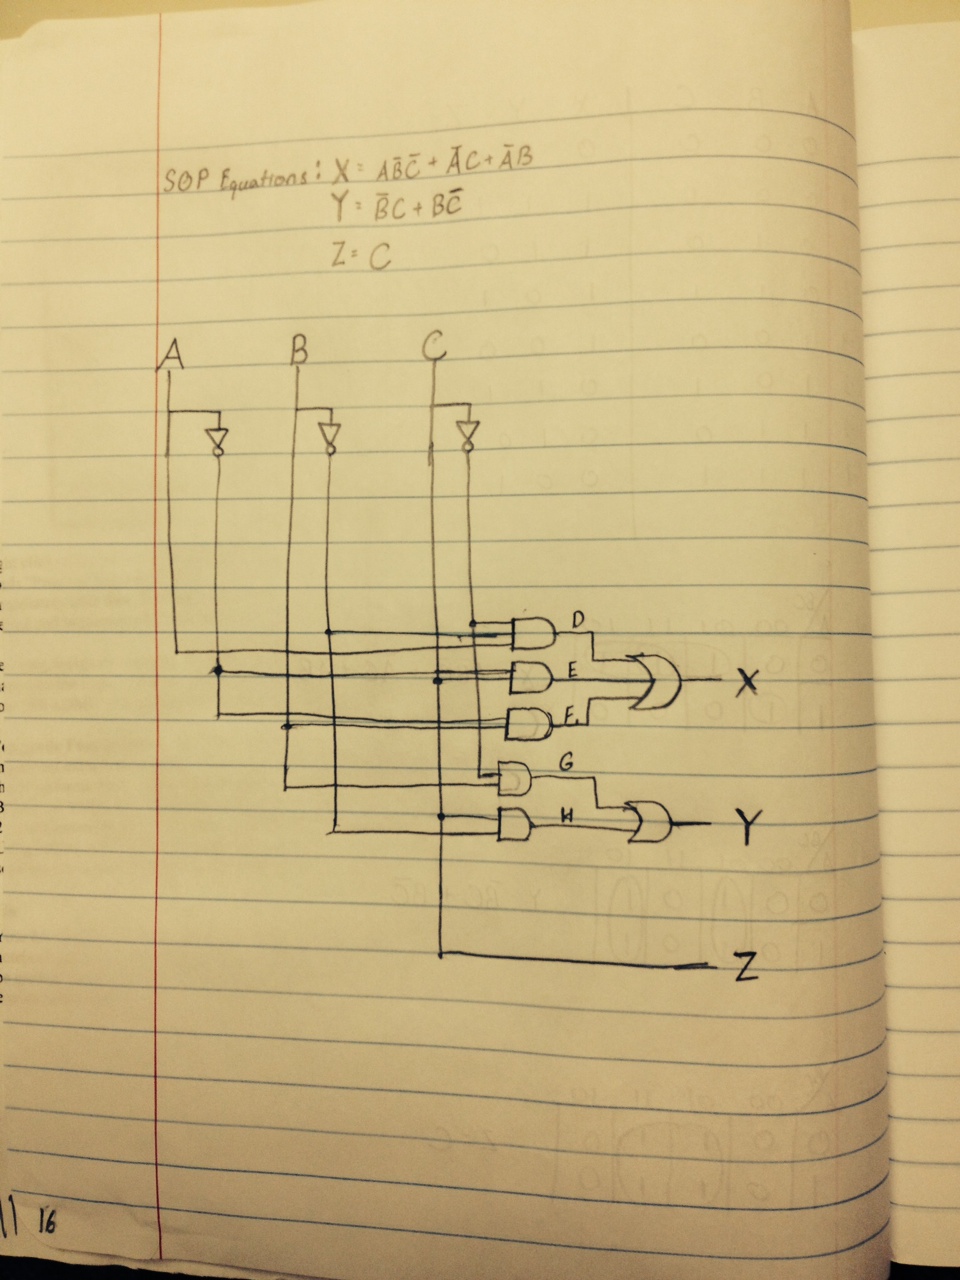 SOP Equations: X = AB̄C̄ + ĀC + ĀB
Y = B̄C + BC̄
Z = C
A B C
D
E
X
F
G
H
Y
Z
16